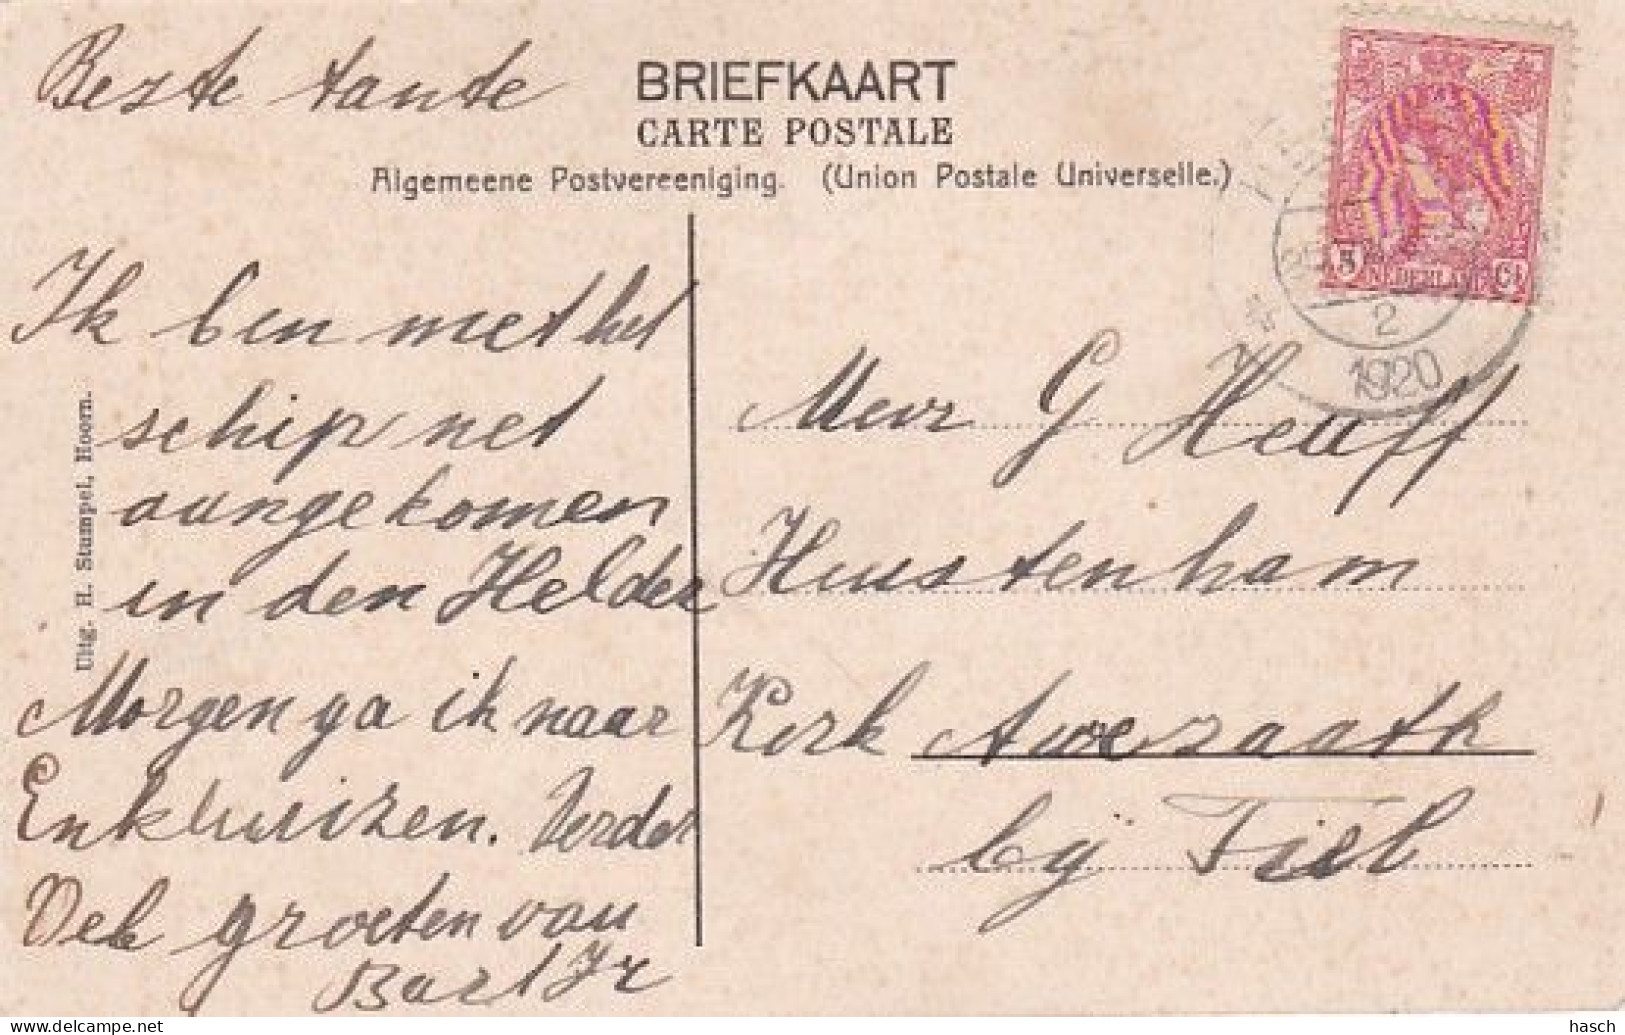 Beste tante
BRIEFKAART
CARTE POSTALE
Algemeene Postvereeniging. (Union Postale Universelle.)
5 NEDERLAND Ct
2
1920
Ik ben met het
schip net
aangekomen
in den Helder
Morgen ga ik naar
Enkhuizen. Verder
Vele groeten van
Bart Jr
Uitg. H. Stumpel, Hoorn.
Mevr G Heuff
Huustenham
Kerk Avezaath
bij Tiel
hasch